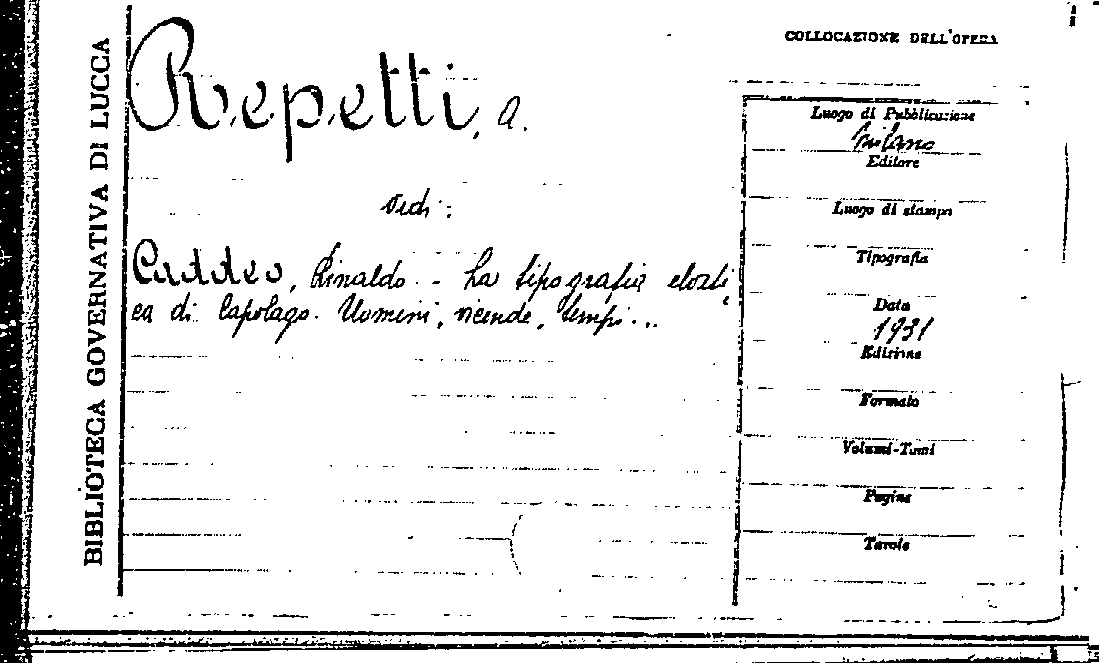 BIBLIOTECA GOVERNATIVA DI LUCCA
COLLOCAZIONE DELL'OPERA
Repetti, A.
Vedi:
Caddeo, Rinaldo - La tipografia elveti
ca di Capolago. Uomini, vicende, tempi...
Luogo di Pubblicazione
Milano
Editore
Luogo di stampa
Tipografia
Data
1931
Edizione
Formato
Volumi-Tomi
Pagine
Tavole